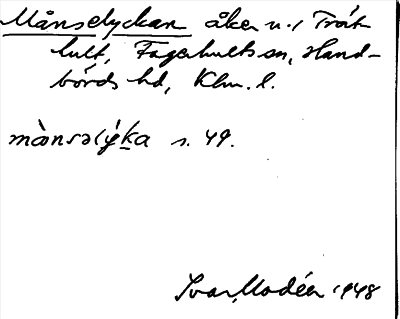 Månselyckan åker u. Tråt-
hult, Fagerhults sn, Hand-
börds hd, Klm. l.
mànsəlý̀ka s. 49.
Ivar Modéer 1948